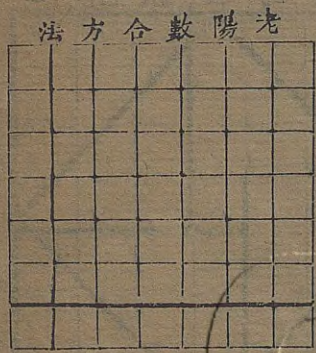 老陽數合方法